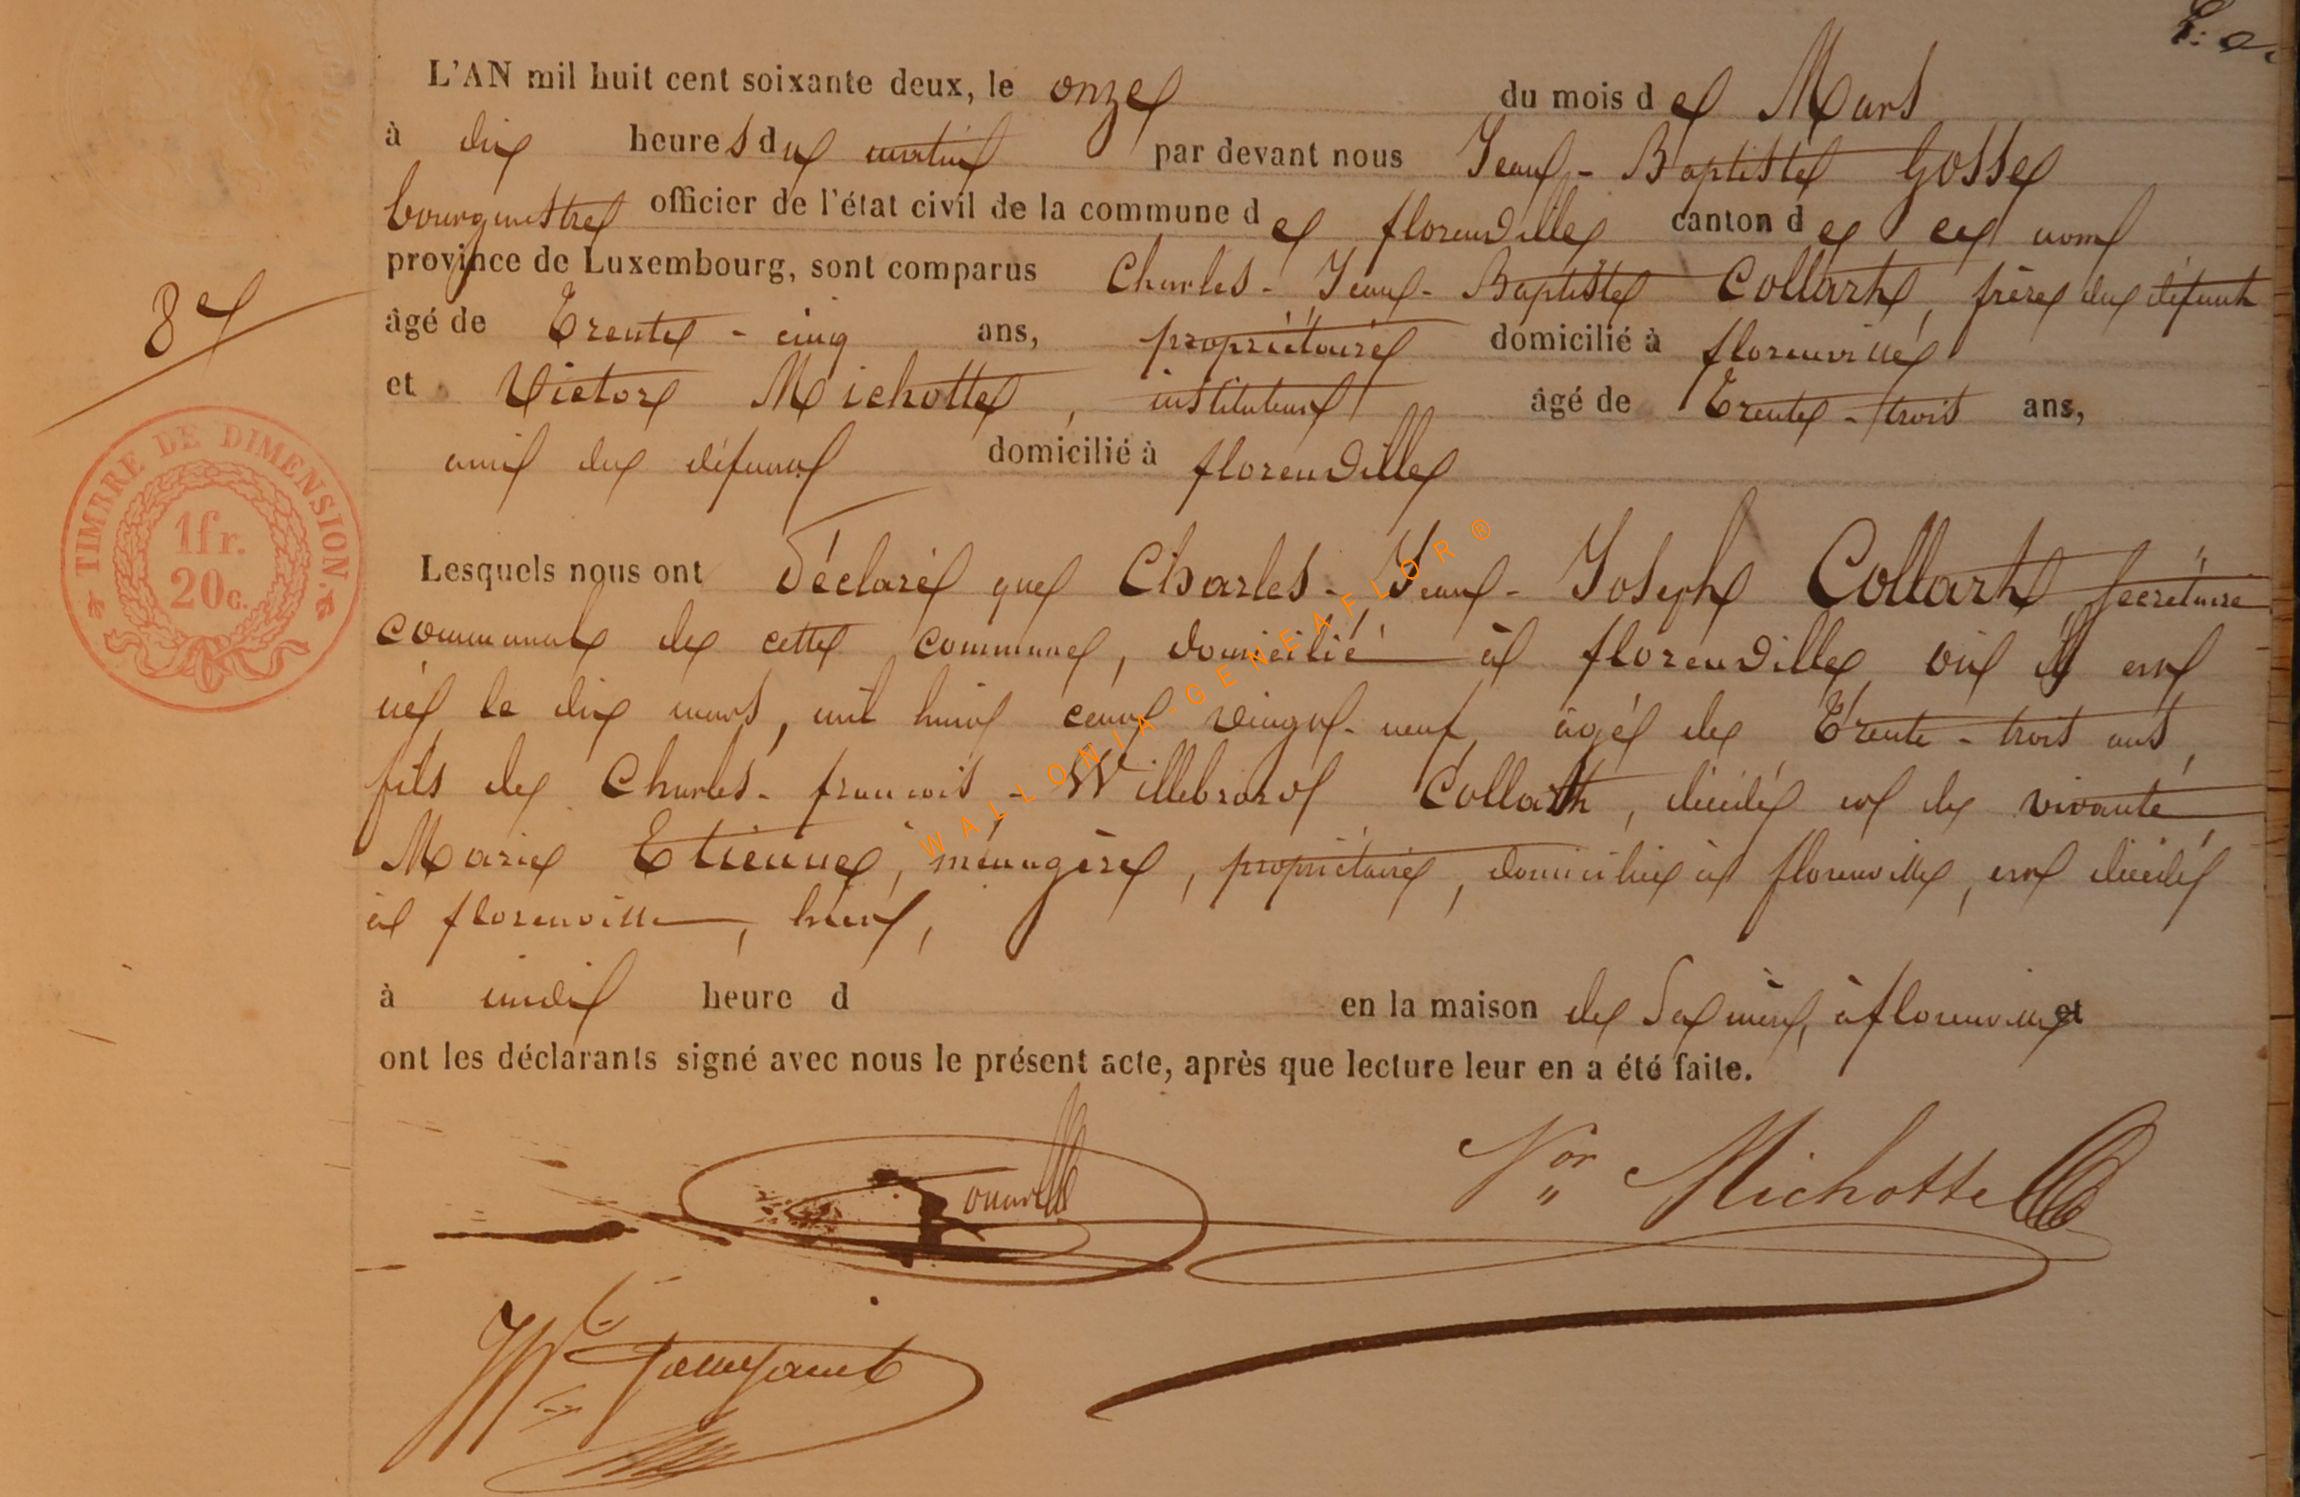 L'AN mil huit cent soixante deux, le onze du mois de Mars
à dix heures du matin par devant nous Jean-Baptiste Gosse
bourgmestre officier de l'état civil de la commune de florenville canton de ce nom
province de Luxembourg, sont comparus Charles-Jean-Baptiste Collart, frère du défunt
âgé de Trente-cinq ans, propriétaire domicilié à florenville
et Victor Michotte, instituteur âgé de Trente-trois ans,
ami du défunt domicilié à florenville
Lesquels nous ont déclaré que Charles-Jean-Joseph Collart, secrétaire
communal de cette commune, domicilié à florenville où il est
né le dix mars, mil huit cent vingt-neuf, âgé de Trente-trois ans,
fils de Charles-francois-Willebrord Collart, décédé et de vivante
Marie Etienne, ménagère, propriétaire, domiciliée à florenville, est décédé
à florenville, hier,
à midi heure d en la maison de sa mère, à florenville et
ont les déclarants signé avec nous le présent acte, après que lecture leur en a été faite.
Vor Michotte
8e
TIMBRE DE DIMENSION.
1fr.
20c.
WALLONIA-GENEAFLOR®